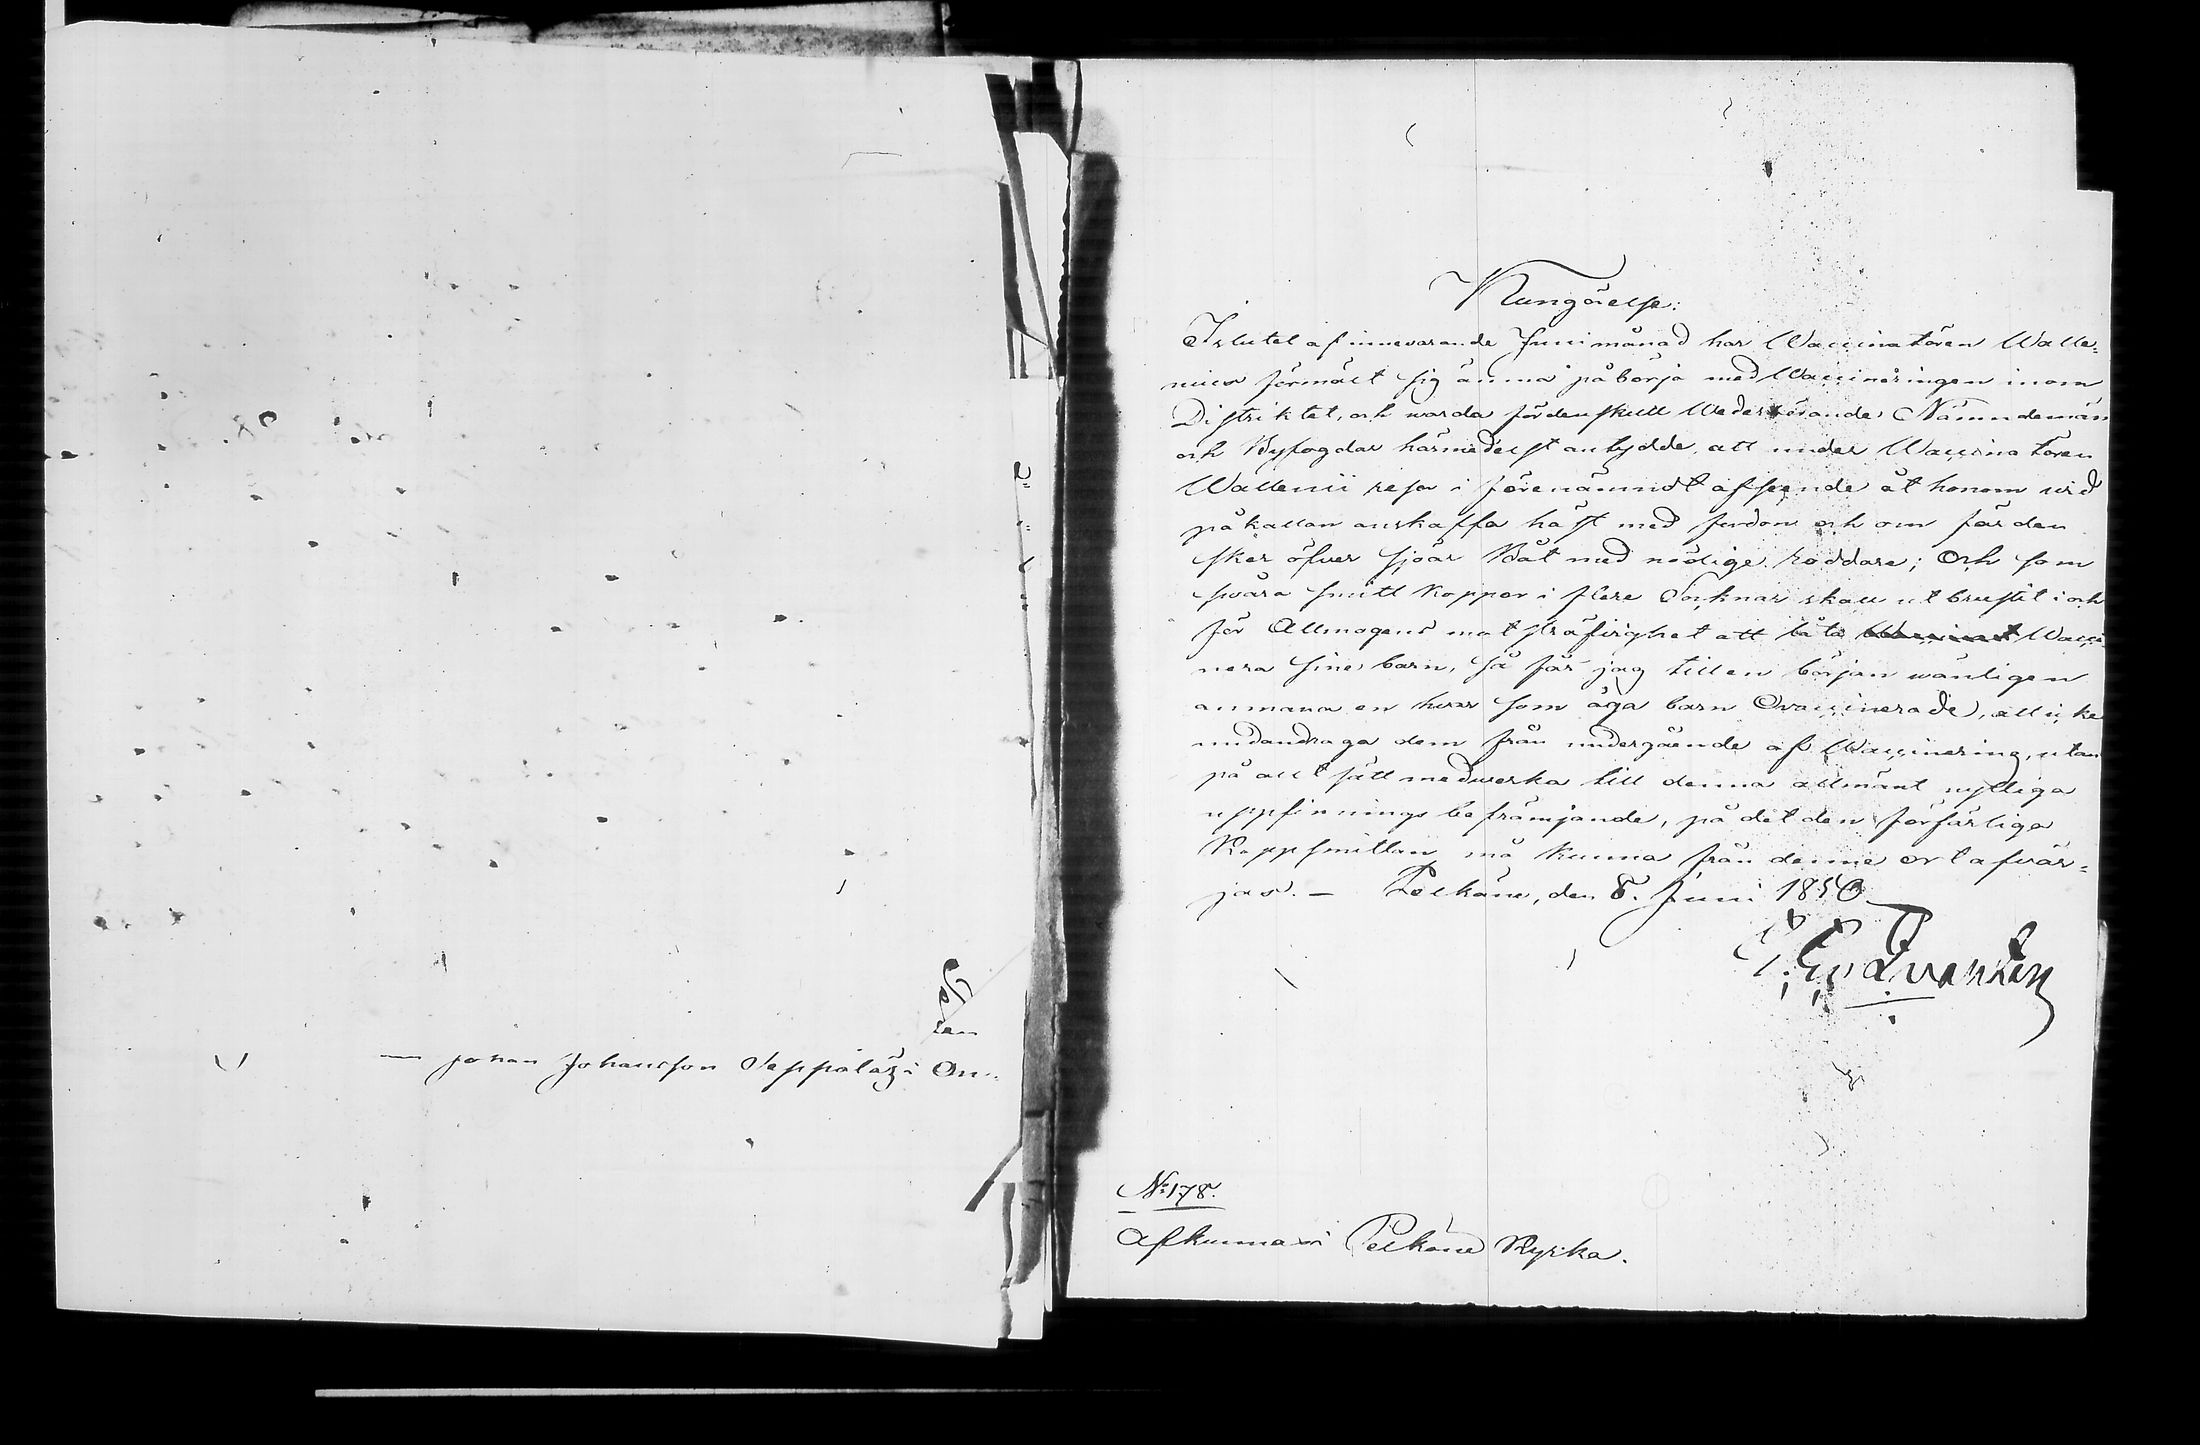 — Johan Johansson Seppälä i On
Kungörelse:
I slutet af innevarande Juni månad har Waccinatören Walle=
nius förmält sig ämna påbörja med Waccineringen inom
Distriktet, och warda fördenskull Wederbörande Nämndemän
och Byfogdar härmedelst antydde, att under Waccinatören
Wallenii resor i förenämndt afseende åt honom vid
påkallan anskaffa häst med fordon och om färden
sker öfver sjöar Båt med nödige roddare; Och som
svåra smittkoppor i flere Socknar skall utbrustit i och
för Allmogens motsträfvighet att låta Wacci
nera sine barn, så får jag till en början wänligen
anmana en hvar som äga barn Ovaccinerade, att icke
undandraga dem från undergående af Waccinering, utan
på allt sätt medwerka till denna allmänt nyttiga
uppfinnings befrämjande, på det den förfärliga
Koppsmittan må kunna från denne ort afvär=
jas. — Pelkäne, den 8. Juni 1850.
No 178.
Afkunnas i Pelkäne Kyrka.